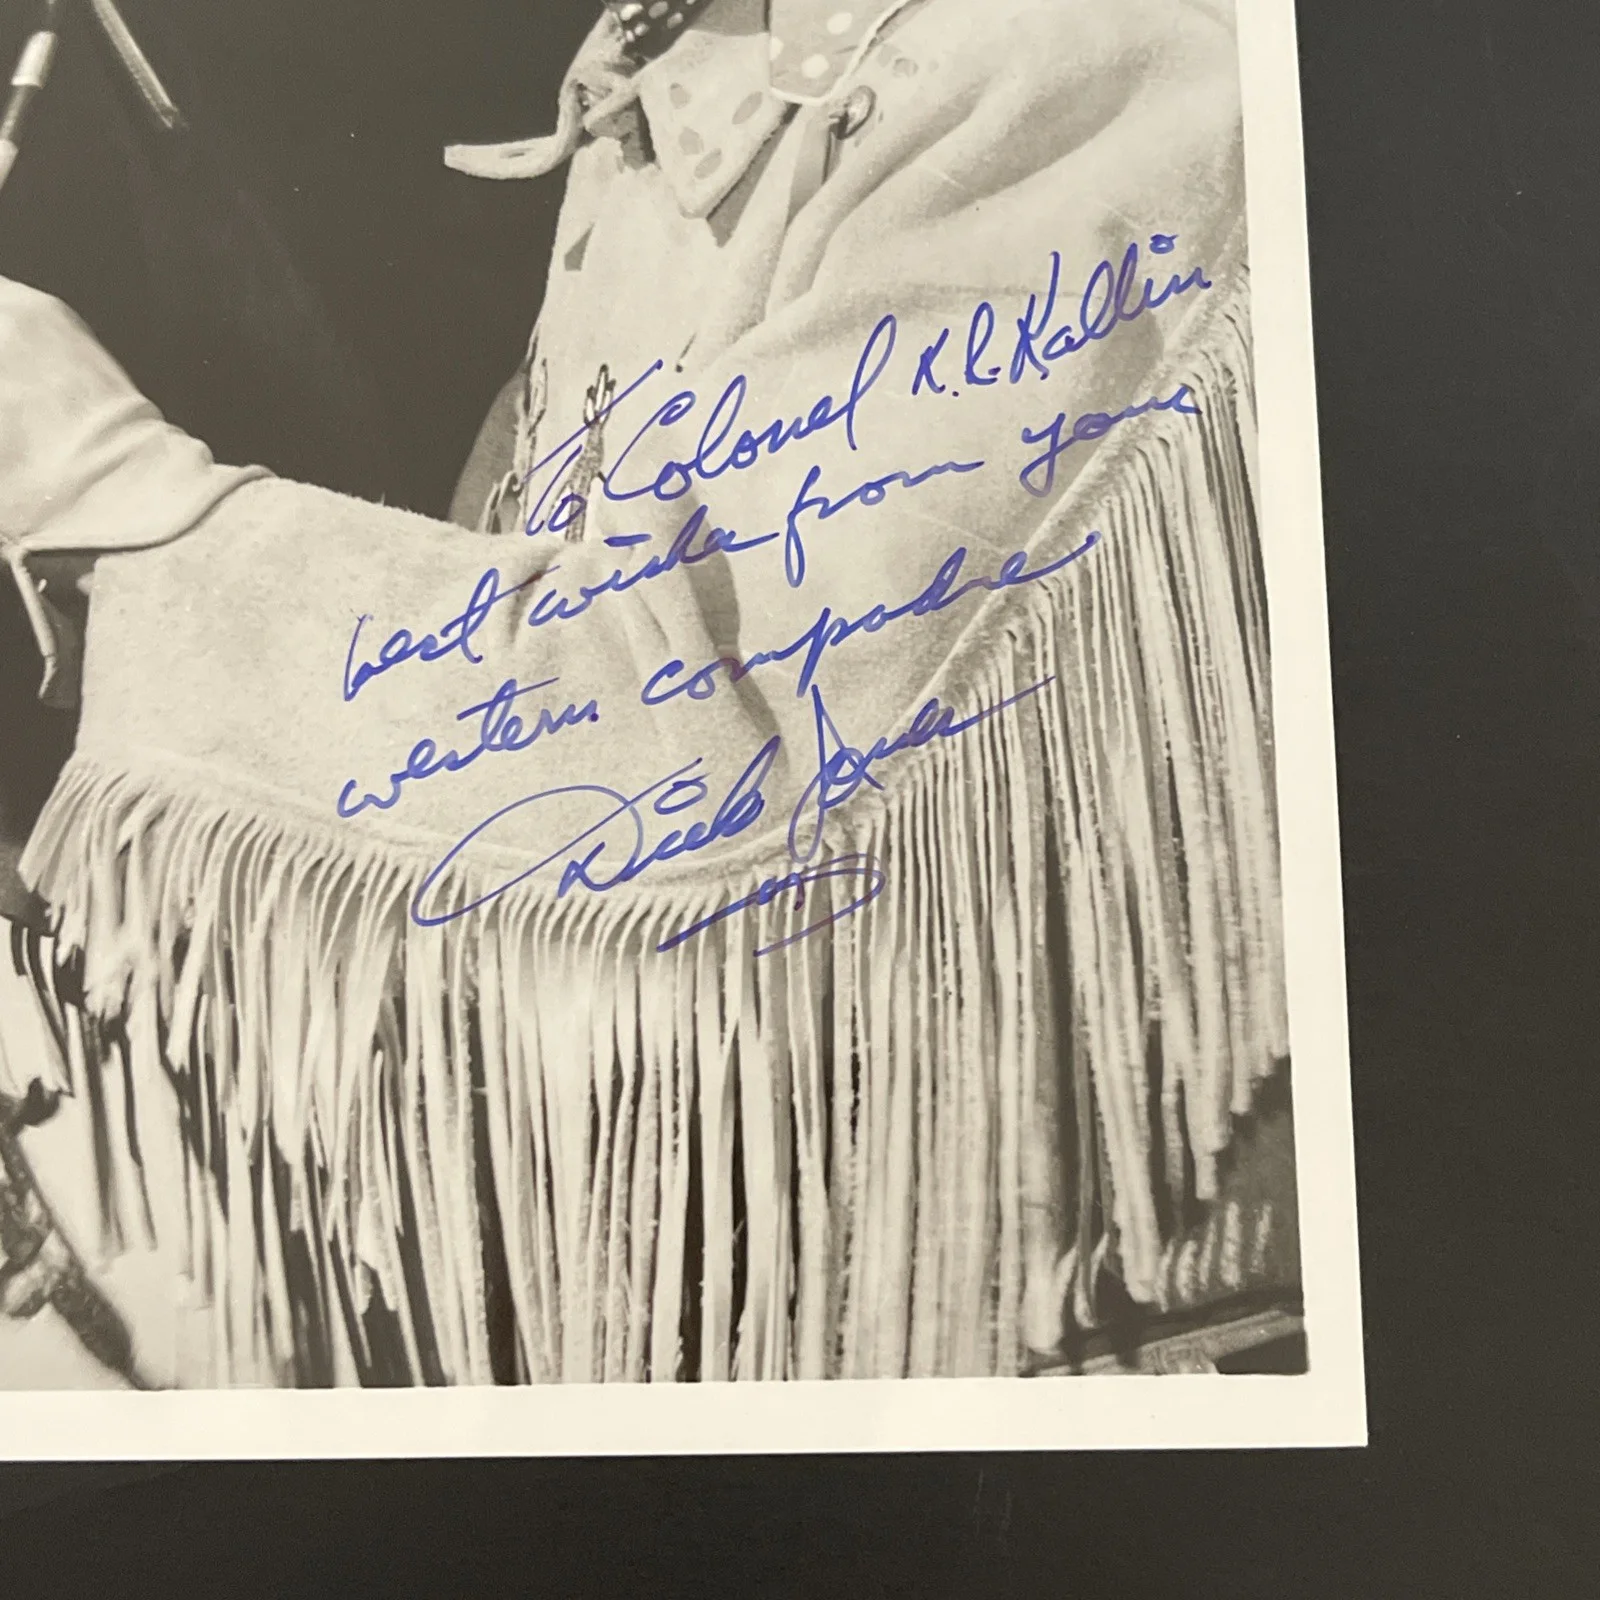 To Colonel K.R. Kallin
best wishes from your
western compadre
Dick Jones